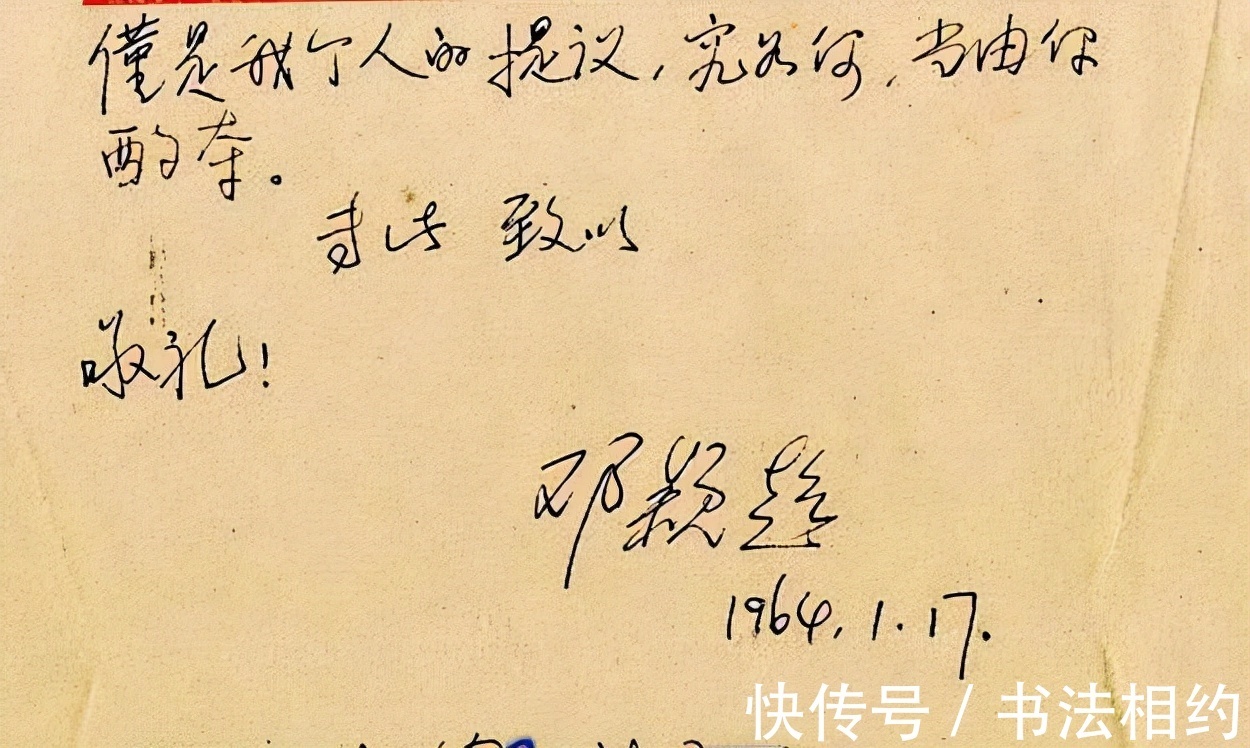 僅是我个人的提议，究如何，当由你
酌夺。
专此 致以
敬礼！
邓颖超
1964.1.17.
快传号 / 书法相约